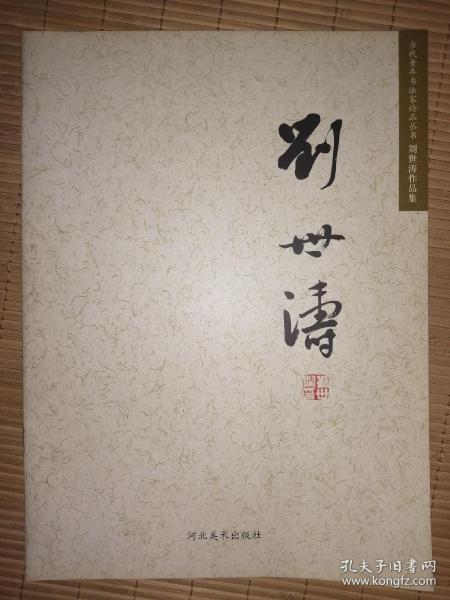 当代青年书法家精品丛书 刘世涛作品集
劉世濤
河北美术出版社
孔夫子旧书网
www.kongfz.com